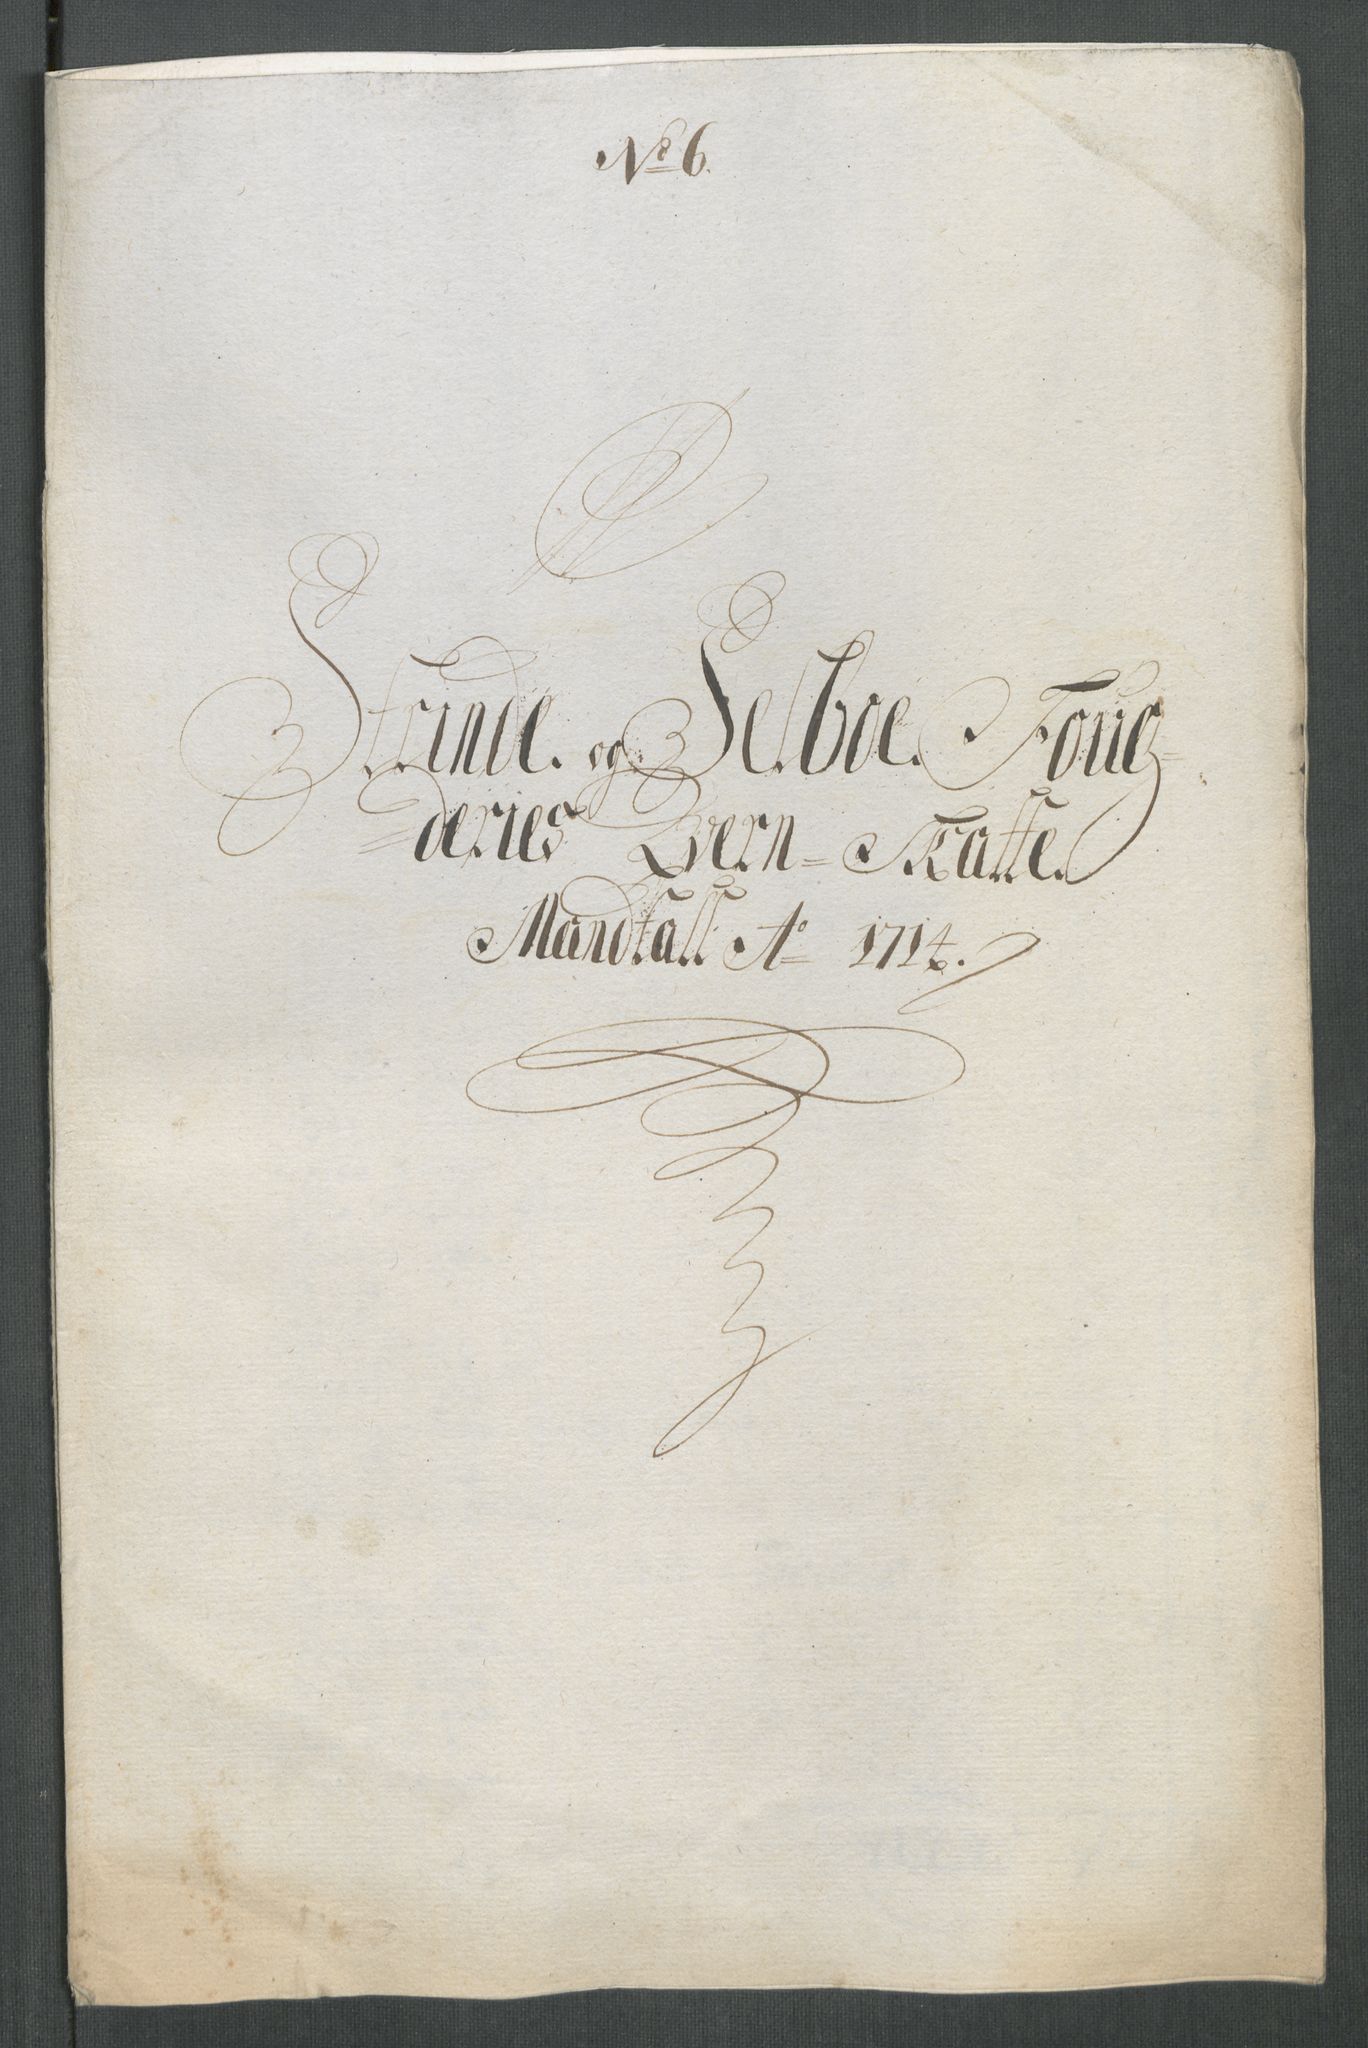 No 6.
Strinde og Selboe Foug=
deries Qvern=Skatte
Mandtall Ao 1714.